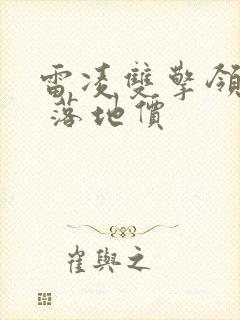 雷凌雙擎領
落地價
崔與之